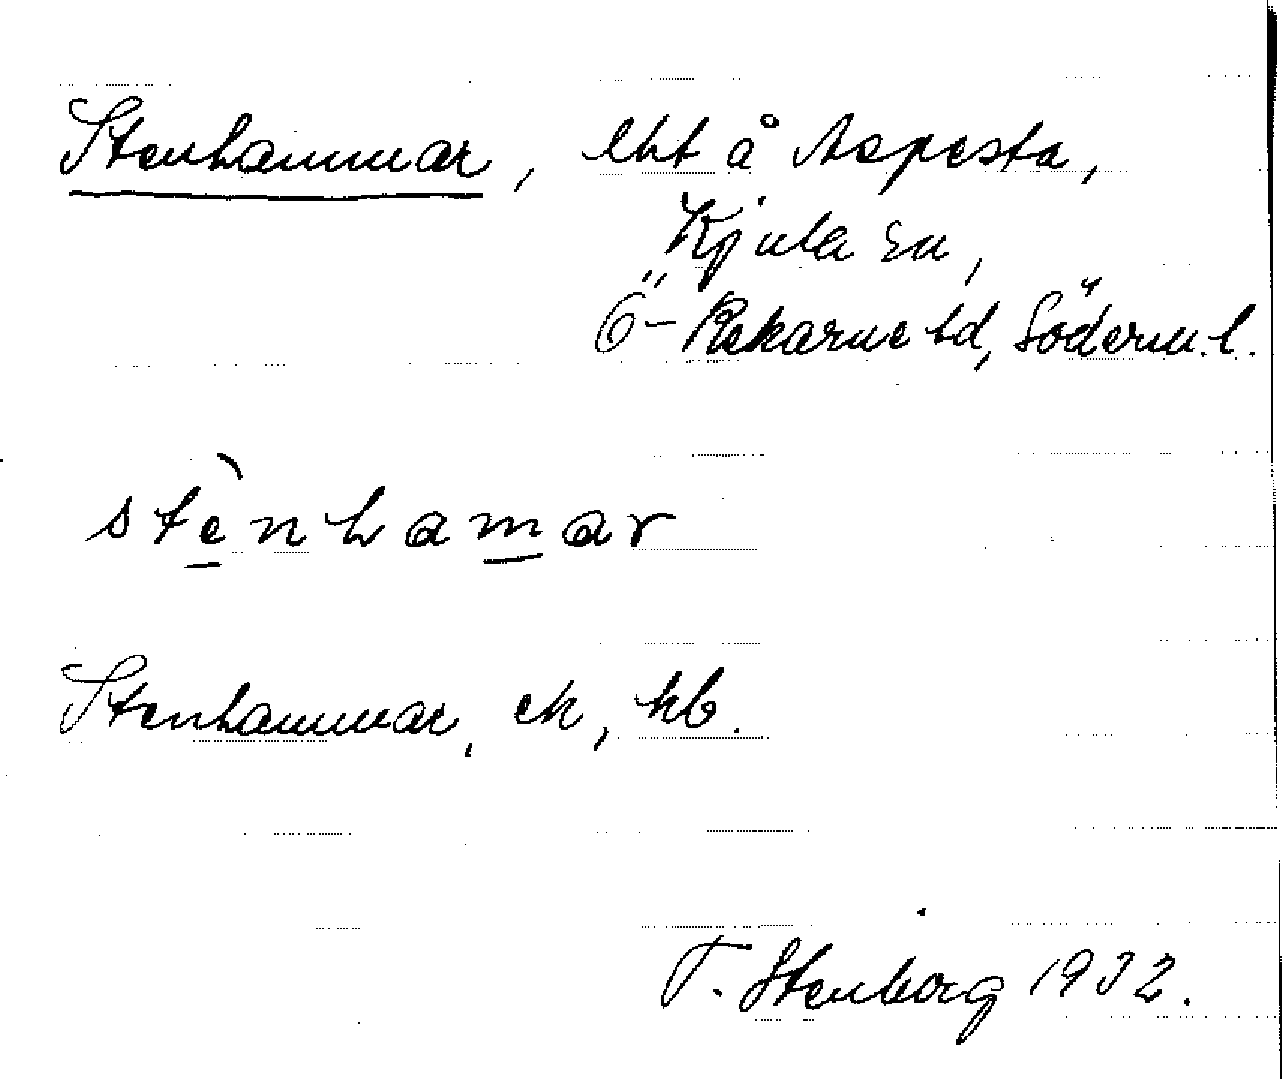 Stenhammar, lht å Aspesta,
Kjula sn,
Ö-Rekarne hd, Söderm. l.
stènhamar
Stenhammar, ek, kb.
T. Stenborg 1932.